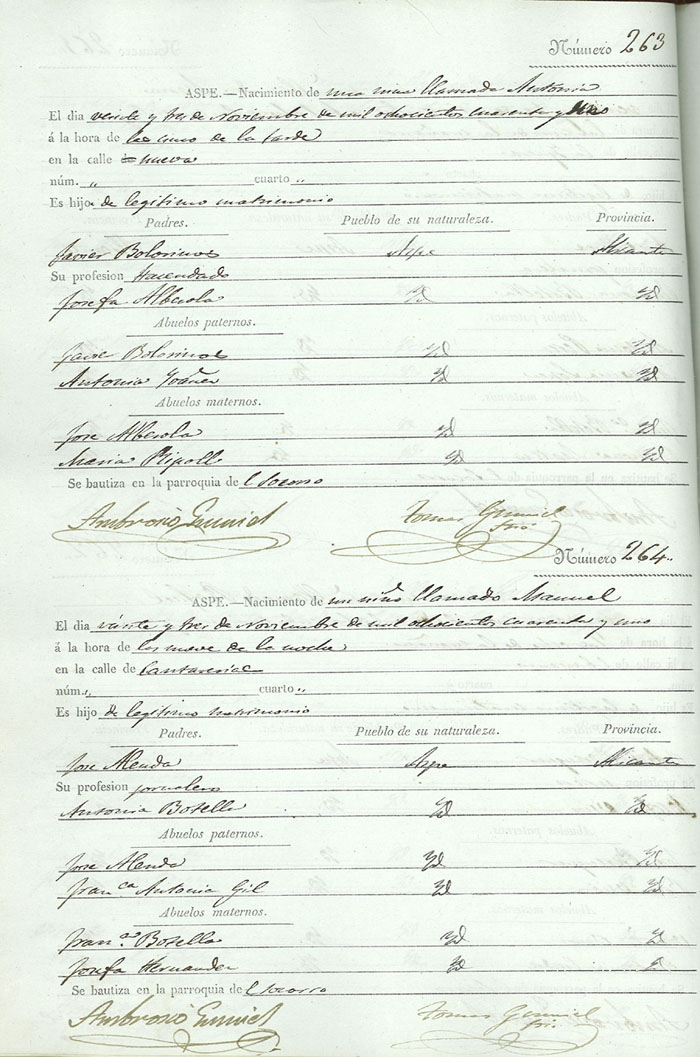 Número 263
ASPE.—Nacimiento de una niña llamada Antonia
El dia veinte y tres de Noviembre de mil ochocientos cuarenta y uno
á la hora de las cinco de la tarde
en la calle nueva
núm. „ cuarto „
Es hijo de legitimo matrimonio
Padres. Pueblo de su naturaleza. Provincia.
Javier Bolorinos Aspe Alicante
Su profesion Hacendado
Josefa Alberola Yd Yd
Abuelos paternos.
Jaime Bolorinos Yd Yd
Antonia Yd Yd
Abuelos maternos.
Jose Alberola Yd Yd
Maria Ripoll Yd Yd
Se bautiza en la parroquia del Socorro
Ambrosio Tomas
Número 264.
ASPE.—Nacimiento de un niño llamado Manuel
El dia veinte y tres de Noviembre de mil ochocientos cuarenta y uno
á la hora de las nueve de la noche
en la calle de
núm. „ cuarto „
Es hijo de legitimo matrimonio
Padres. Pueblo de su naturaleza. Provincia.
Jose Alenda Aspe Alicante
Su profesion jornalero
Antonia Botella Yd Yd
Abuelos paternos.
Jose Alenda Yd Yd
Fran.ca Antonia Gil Yd Yd
Abuelos maternos.
Fran.co Botella Yd Yd
Josefa Hernandez Yd Yd
Se bautiza en la parroquia del Socorro
Ambrosio Tomas